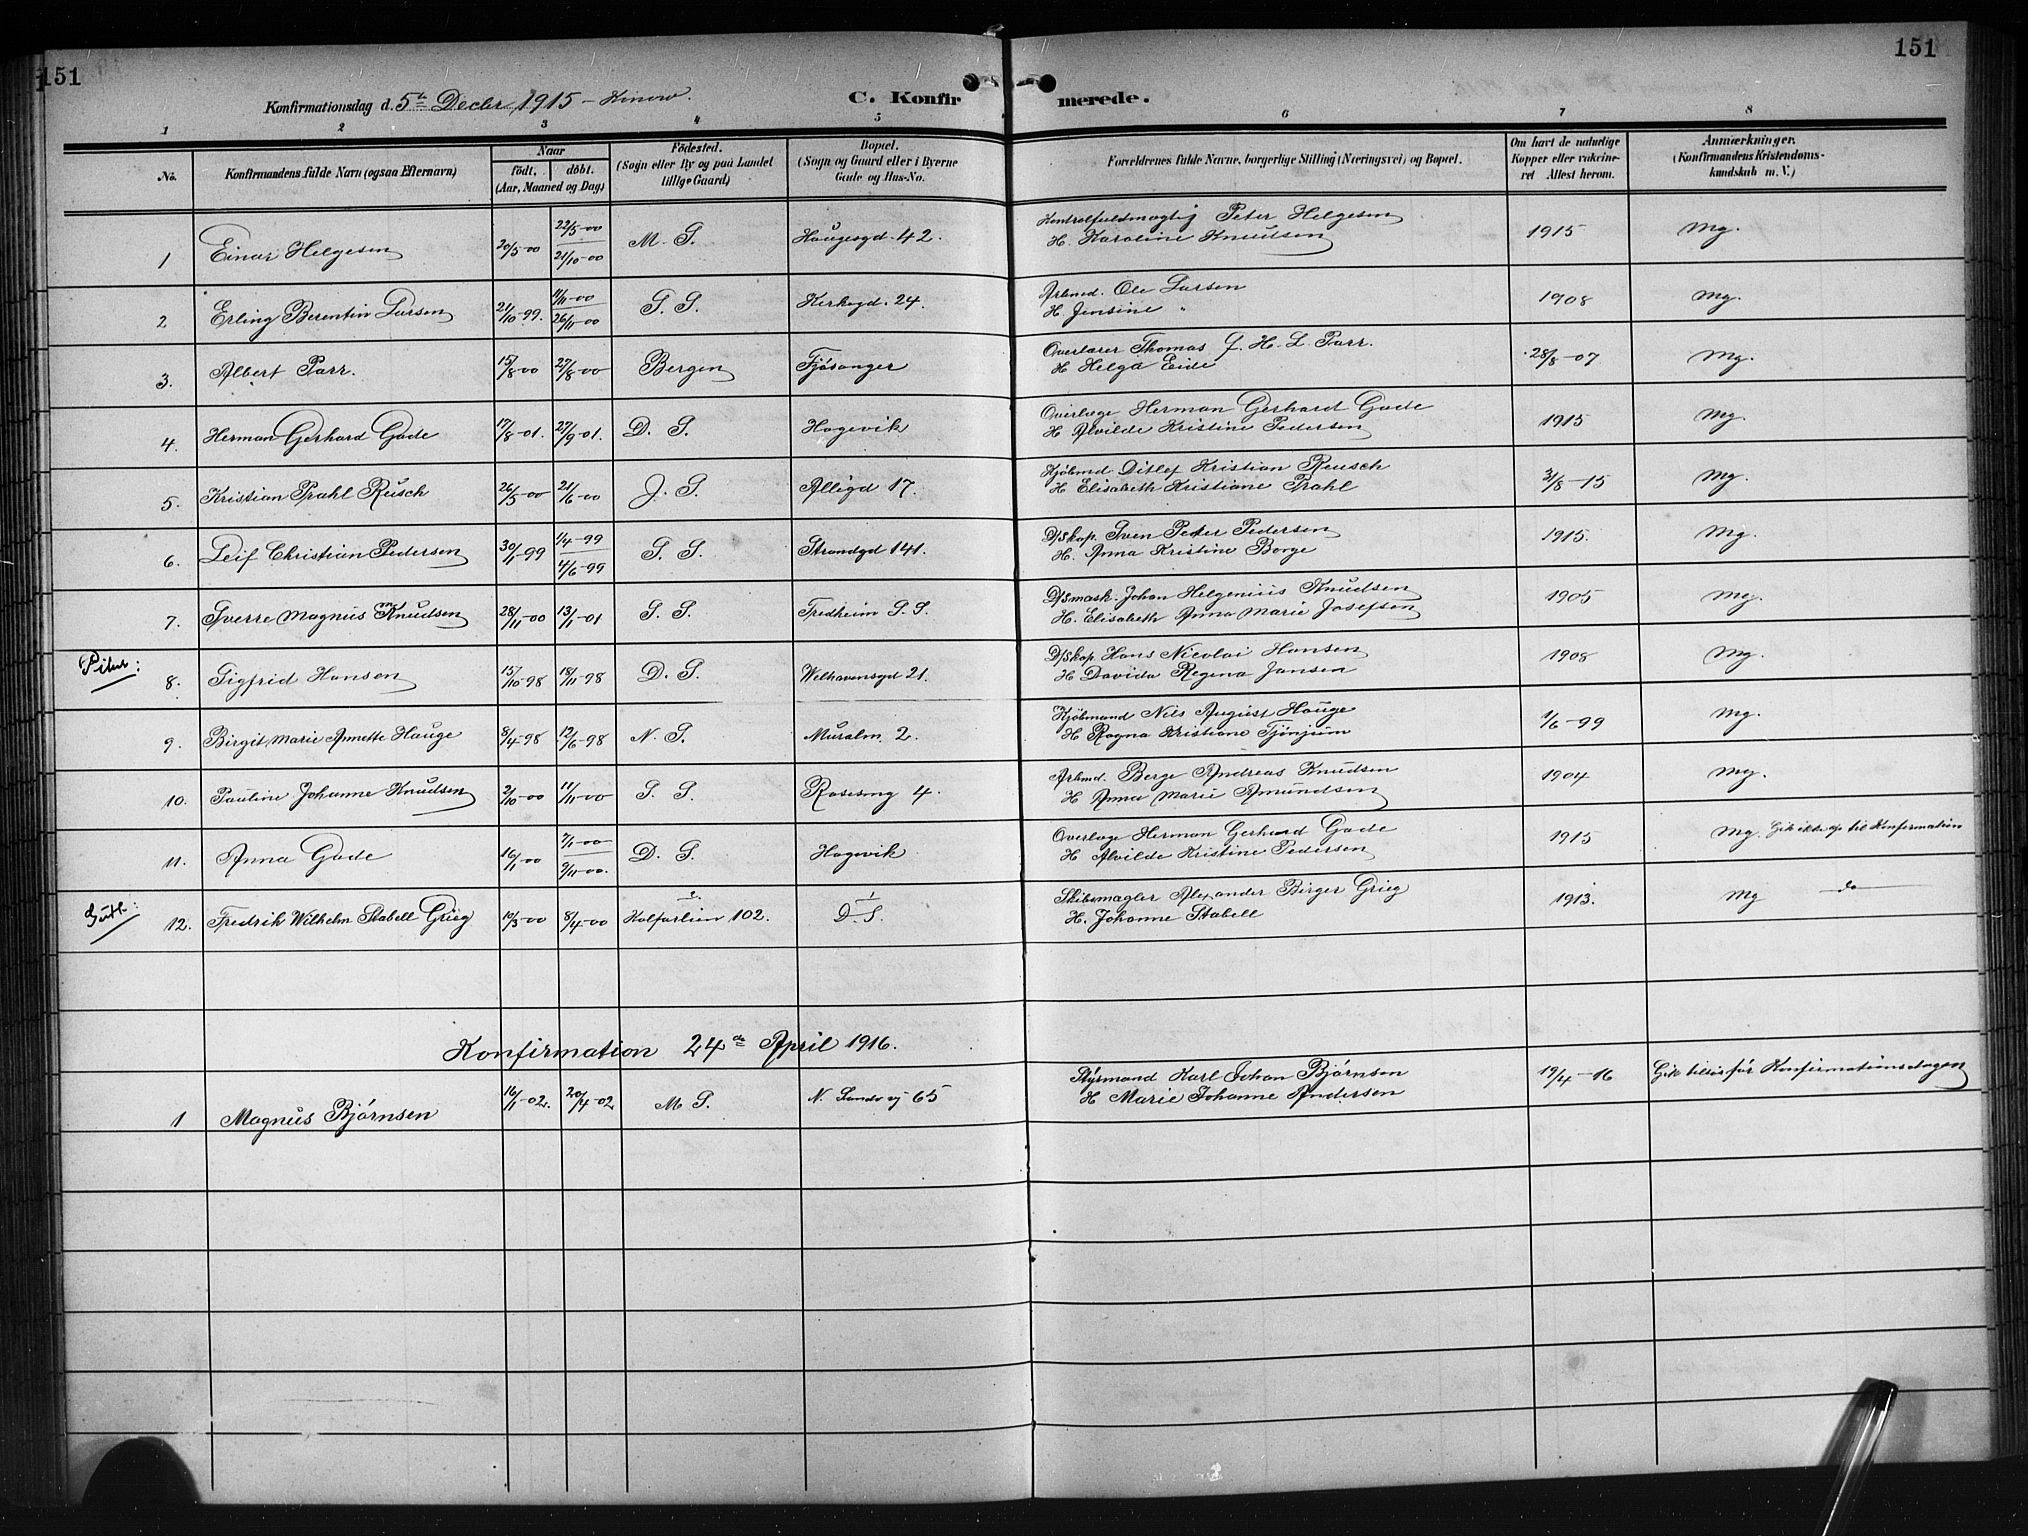 151
151
Konfirmationsdag d. 5te Decbr 1915 –
C. Konfirmerede.
1 2 3 4 5 6 7 8
No.
Konfirmandens fulde Navn (ogsaa Efternavn)
Naar
födt, döbt.
(Aar, Maaned og Dag)
Födested.
(Sogn eller By og paa Landet
tillige Gaard)
Bopæl.
(Sogn og Gaard eller i Byerne
Gade og Hus-No.
Forældrenes fulde Navne, borgerlige Stilling (Næringsvei) og Bopæl.
Om havt de naturlige
Kopper eller vakcine-
ret Attest herom.
Anmærkninger.
(Konfirmandens Kristendoms-
kundskab m. V.)
1 Einar Helgesen 20/5-00 22/5-00 21/10-00 M. S. Haugesgd. 42. Kontrolfuldmægtig Peter Helgesen
H. Karoline Knudsen 1915 Mg.
2 Erling Berentin Larsen 21/10-99. 11/11-00 26/11-00 S. S. Kirkegd. 24. Arbmd. Ole Larsen
H. Jensine " 1908 Mg.
3. Albert Parr. 15/8-00 27/8-00 Bergen Fjøsanger Overlærer Thomas J. H. L. Parr.
H Helga Eide 28/8-07 Mg.
4. Herman Gerhard Gade 17/8-01. 27/9-01. D. S. Hagevik Overlæge Herman Gerhard Gade
H Alvilde Kristine Pedersen 1915 Mg.
5. Kristian Prahl Reusch 26/5-00 21/6-00 J. S. Allégd 17. Kjøbmd. Ditlef Kristian Reusch
H Elisabeth Kristiane Prahl 31/8-15 Mg.
6. Leif Christian Pedersen 30/1-99 1/4-99 4/6-99 S. S. Strandgd 141. D/Skap. Sven Peter Pedersen
H. Anna Kristine Borge 1915. Mg.
7. Sverre Magnus Knudsen 28/11-00 13/1-01 S. S. Fredheim S. S. D/Smask. Johan Helgenius Knudsen
H. Elisabeth Anna Marie Josefsen 1905 Mg.
8. Sigfrid Hansen 15/10-98 18/11-98 D. S. Welhavensgd 21. D/Skap. Hans Nicolai Hansen
H Davida Regina Jansen 1908 Mg.
9. Birgit Marie Annette Hauge 8/4-98 12/6-98 N. S. Muralm. 2. Kjøbmand Nils August Hauge
H Ragna Kristiane Tjønjum 1/6-99 Mg.
10. Pauline Johanne Knudsen 2/10-00 11/11-00 S. S. Rosesmg 4. Arbmd. Berge Andreas Knudsen
H Anna Marie Amundsen 1904 Mg.
11. Anna Gade 16/1-00 7/1-00 9/11-00. D. S. Hagevik Overlæge Herman Gerhard Gade
H Alvilde Kristine Pedersen 1915 Mg. Gik ikke op til Konfirmation
12. Fredrik Wilhelm Stabell Grieg 10/3-00 8/4-00 Kalfarlien 102. D. S. Skibsmægler Alexander Birger Grieg
H. Johanne Stabell 1913. Mg do
Konfirmation 24de April 1916.
1 Magnus Bjørnsen 16/1-02. 20/4-02 M S. N. Sandv vj 65 Styrmand Karl Johan Bjørnsen
H Marie Johanne Andersen 19/4-16 Gik tilalters før Konfirmationsdagen